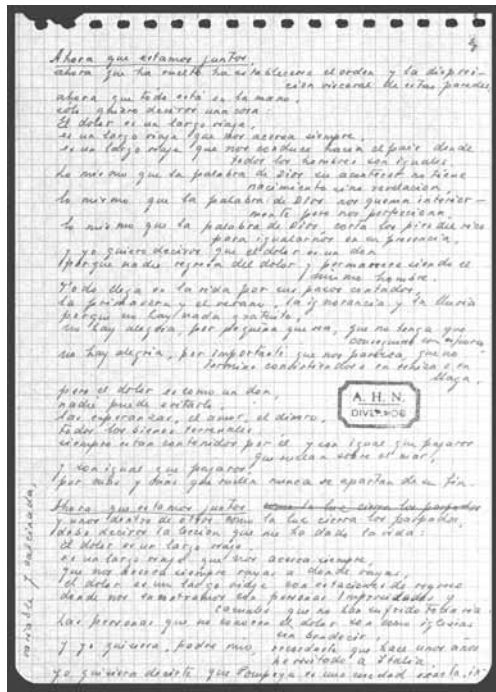 Ahora que estamos juntos,
ahora que ha vuelto ha establecerse el orden y la disposi-
cion visceral de estas paredes,
ahora que todo está en la mano,
solo quiero deciros una cosa:
El dolor es un largo viaje,
es un largo viaje que nos acerca siempre,
es un largo viaje que nos conduce hacia el pais donde
todos los hombres son iguales.
Lo mismo que la palabra de Dios su acontecer no tiene
nacimiento sino revelacion
lo mismo que la palabra de Dios nos quema interior-
mente pero nos perfecciona.
lo mismo que la palabra de Dios corta los pies del rico
para igualarnos en su presencia.
y yo quiero deciros que el dolor es un don
porque nadie regresa del dolor y permanece siendo el
mismo hombre.
Todo llega en la vida por sus pasos contados,
la primavera y el verano, la ignorancia y la lluvia
porque no hay nada gratuito,
no hay alegria, por pequeña que sea, que no tenga que
conseguirse con esfuerzo
no hay alegria, por importante que nos parezca, que no
termine convirtiendose en ceniza o en
llaga,
pero el dolor es como un don,
nadie puede evitarlo,
las esperanzas, el amor, el dinero,
todos los bienes terrenales
siempre estan contenidos por el y son igual que pajaros
que vuelan sobre el mar,
y son igual que pajaros,
por mas y daños que vuelen nunca se apartan de su fin.
A. H. N.
DIVERSOS
Ahora que estamos juntos como la luz cierra los parpados
y unos dentro de otros como la luz cierra los parpados,
debo deciros la leccion que me ha dado la vida:
El dolor es un largo viaje,
es un largo viaje que nos acerca siempre,
que nos acerca siempre vayas a donde vayas,
el dolor es un largo viaje con estaciones de regreso
donde nos encontramos con personas
casuales que no han sufrido todavia
Las personas que no conocen el dolor son como iglesias
sin bendecir,
y yo quisiera, padre mio, recordarte que hace unos años
he visitado a Italia,
yo quisiera decirte que Pompeya es una ciudad exacta, in-
variable y calcinada,